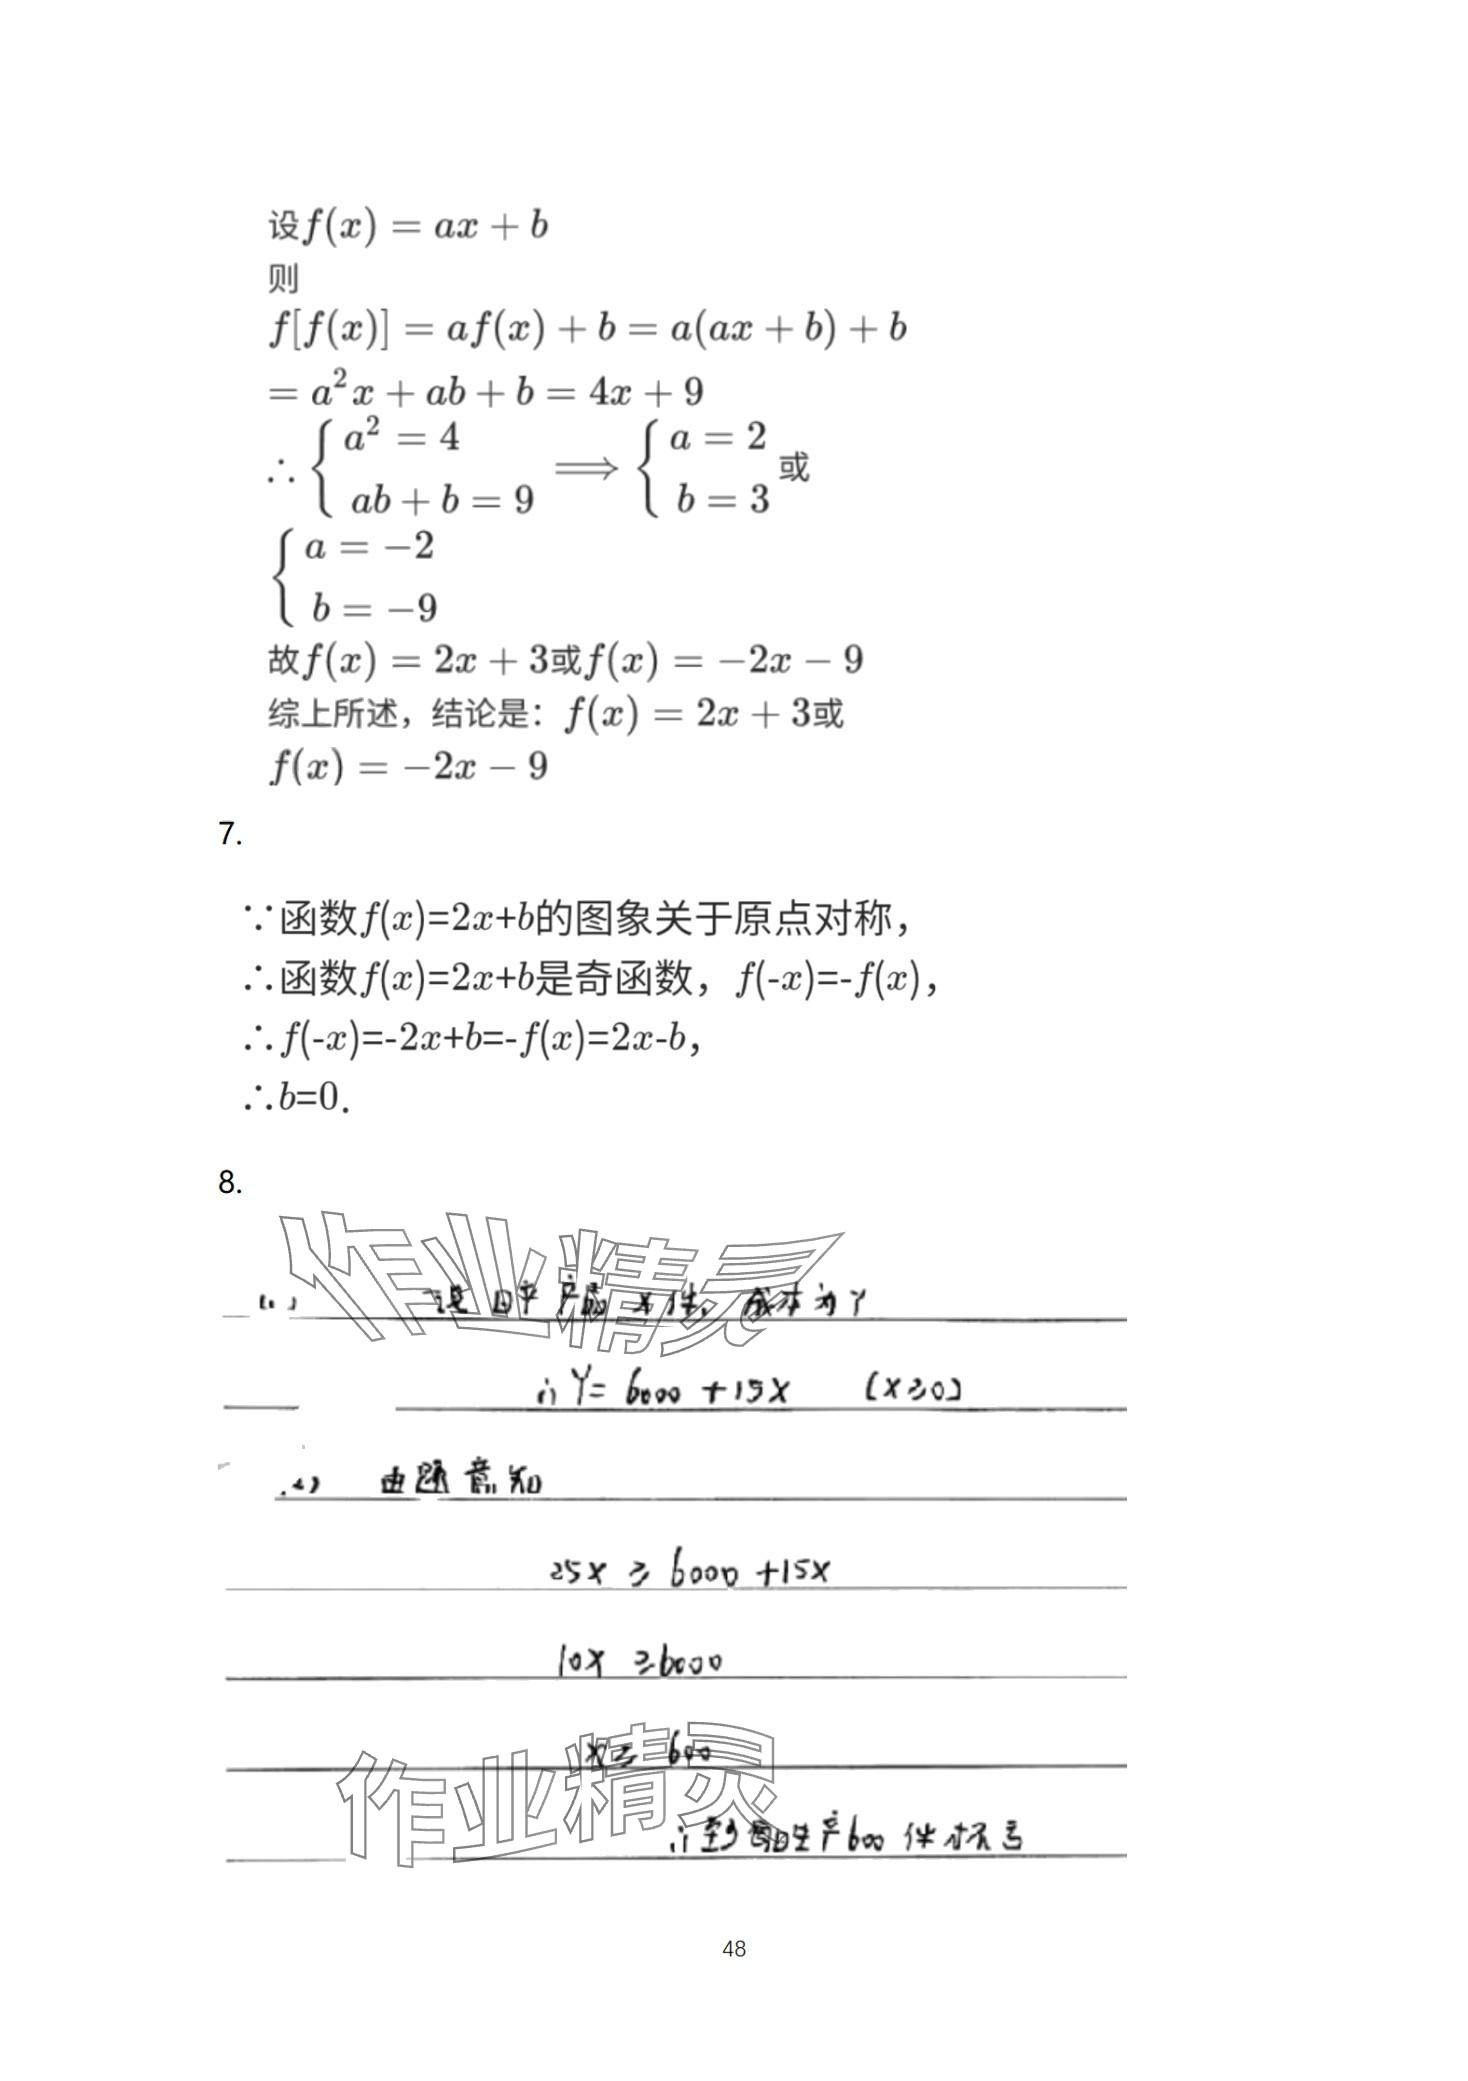 设f(x) = ax + b
则
f[f(x)] = af(x) + b = a(ax + b) + b
= a²x + ab + b = 4x + 9
∴ { a² = 4 ⟹ { a = 2 或
ab + b = 9 b = 3
{ a = −2
b = −9
故f(x) = 2x + 3或f(x) = −2x − 9
综上所述，结论是：f(x) = 2x + 3或
f(x) = −2x − 9
7.
∵函数f(x)=2x+b的图象关于原点对称，
∴函数f(x)=2x+b是奇函数，f(-x)=-f(x)，
∴f(-x)=-2x+b=-f(x)=2x-b，
∴b=0.
8.
作业精灵
(1) 设日产产品 x 件，成本为Y
∴ Y= 6000 +15X (X≥0)
(2) 由题意知
25X ≥ 6000 +15X
10X ≥6000
X≥ 600
作业精灵
∴至少每日生产600 件才不亏
48